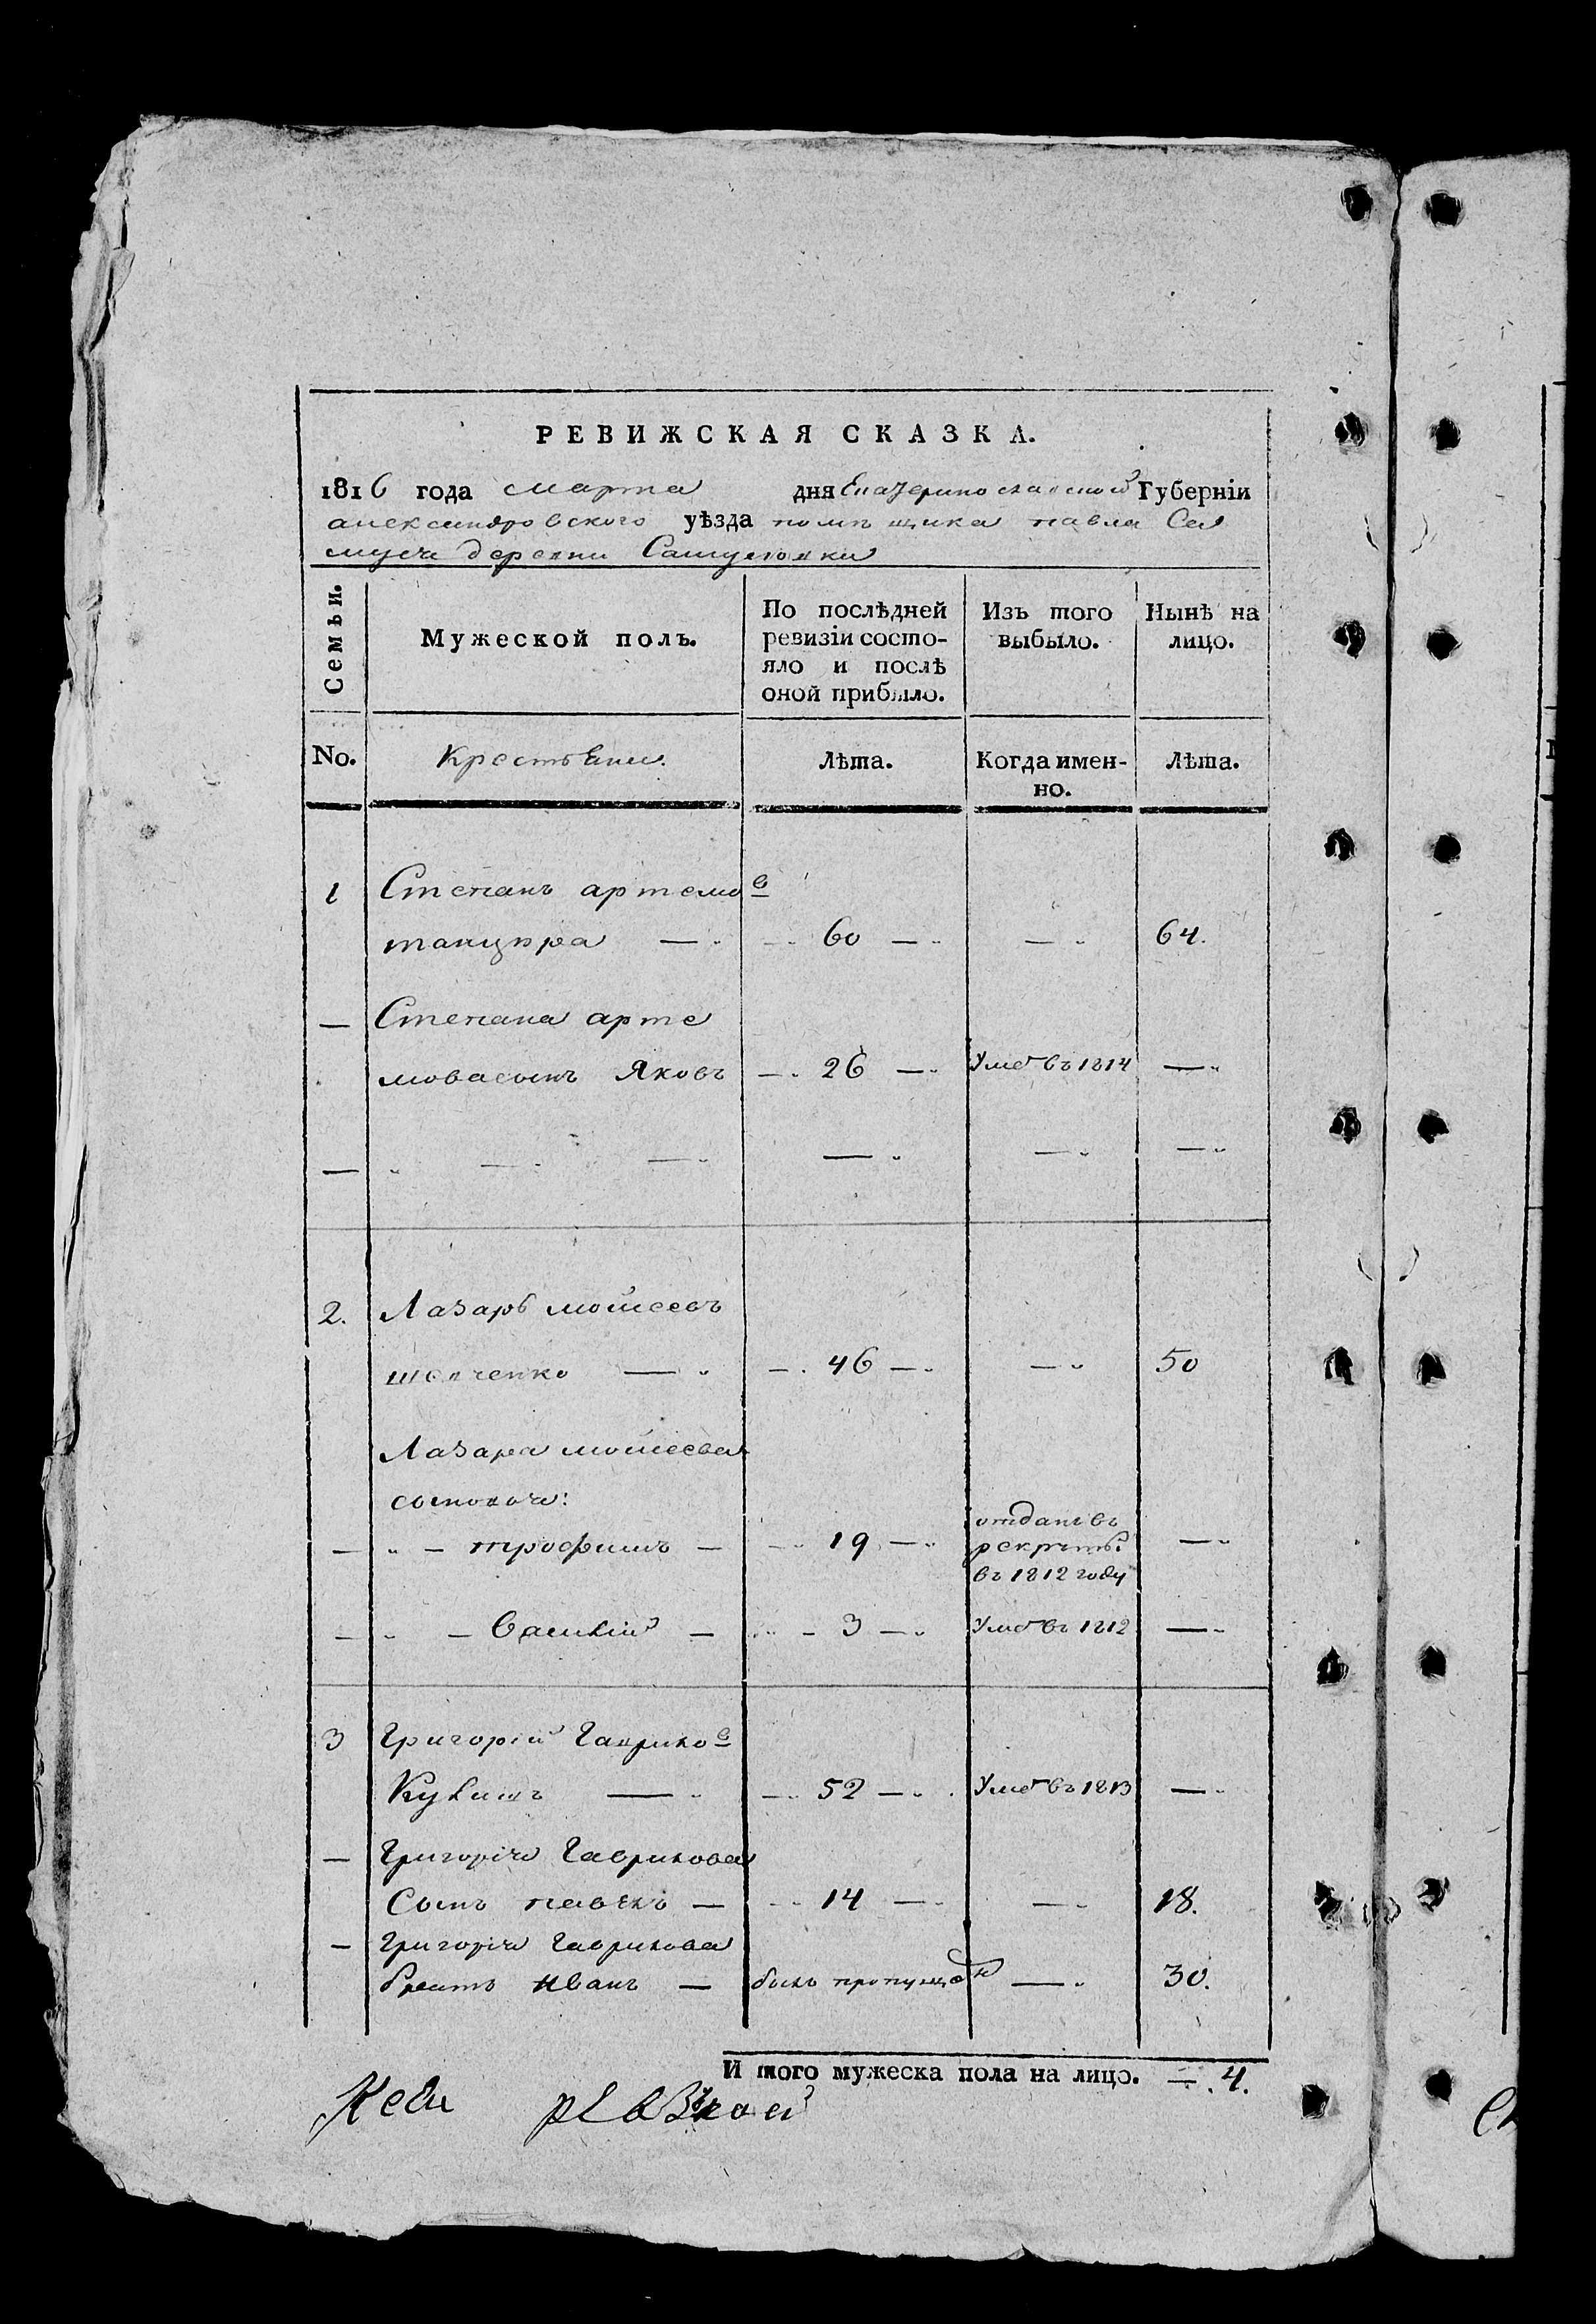 РЕВИЖСКАЯ СКАЗКА.
1816 года марта дня Екатеринославской Губерніи
александровского уѣзда помѣщика павла
деревни
Семьи.
Мужеской полъ.
По послѣдней ревизіи состо-
яло и послѣ
оной прибыло.
Изъ того
выбыло.
Нынѣ на
лицо.
No.
Крестьяни.
Лѣта.
Когда имен-
но.
Лѣта.
1 Степанъ артемов
60 — — 64.
— Степана арте
мова сынъ Яковъ — 26 — Уме въ 1814 —
— — — — — —
2. Лазарь мойсеевъ
шевченко — — 46 — — 50
Лазара мойсеева
сыновья:
— — трофимъ — — 19 — отданъ въ
рекруты
въ 1812 году —
— — Василій — — 3 — Уме въ 1812 —
3 Григорій Гаврилов
— 52 — Уме въ 1813 —
— Григорія Гаврилова
Сынъ павелъ — — 14 — — 18.
— Григорія Гаврилова
братъ Иванъ — былъ пропущен — 30.
И того мужеска пола на лицо. — 4.